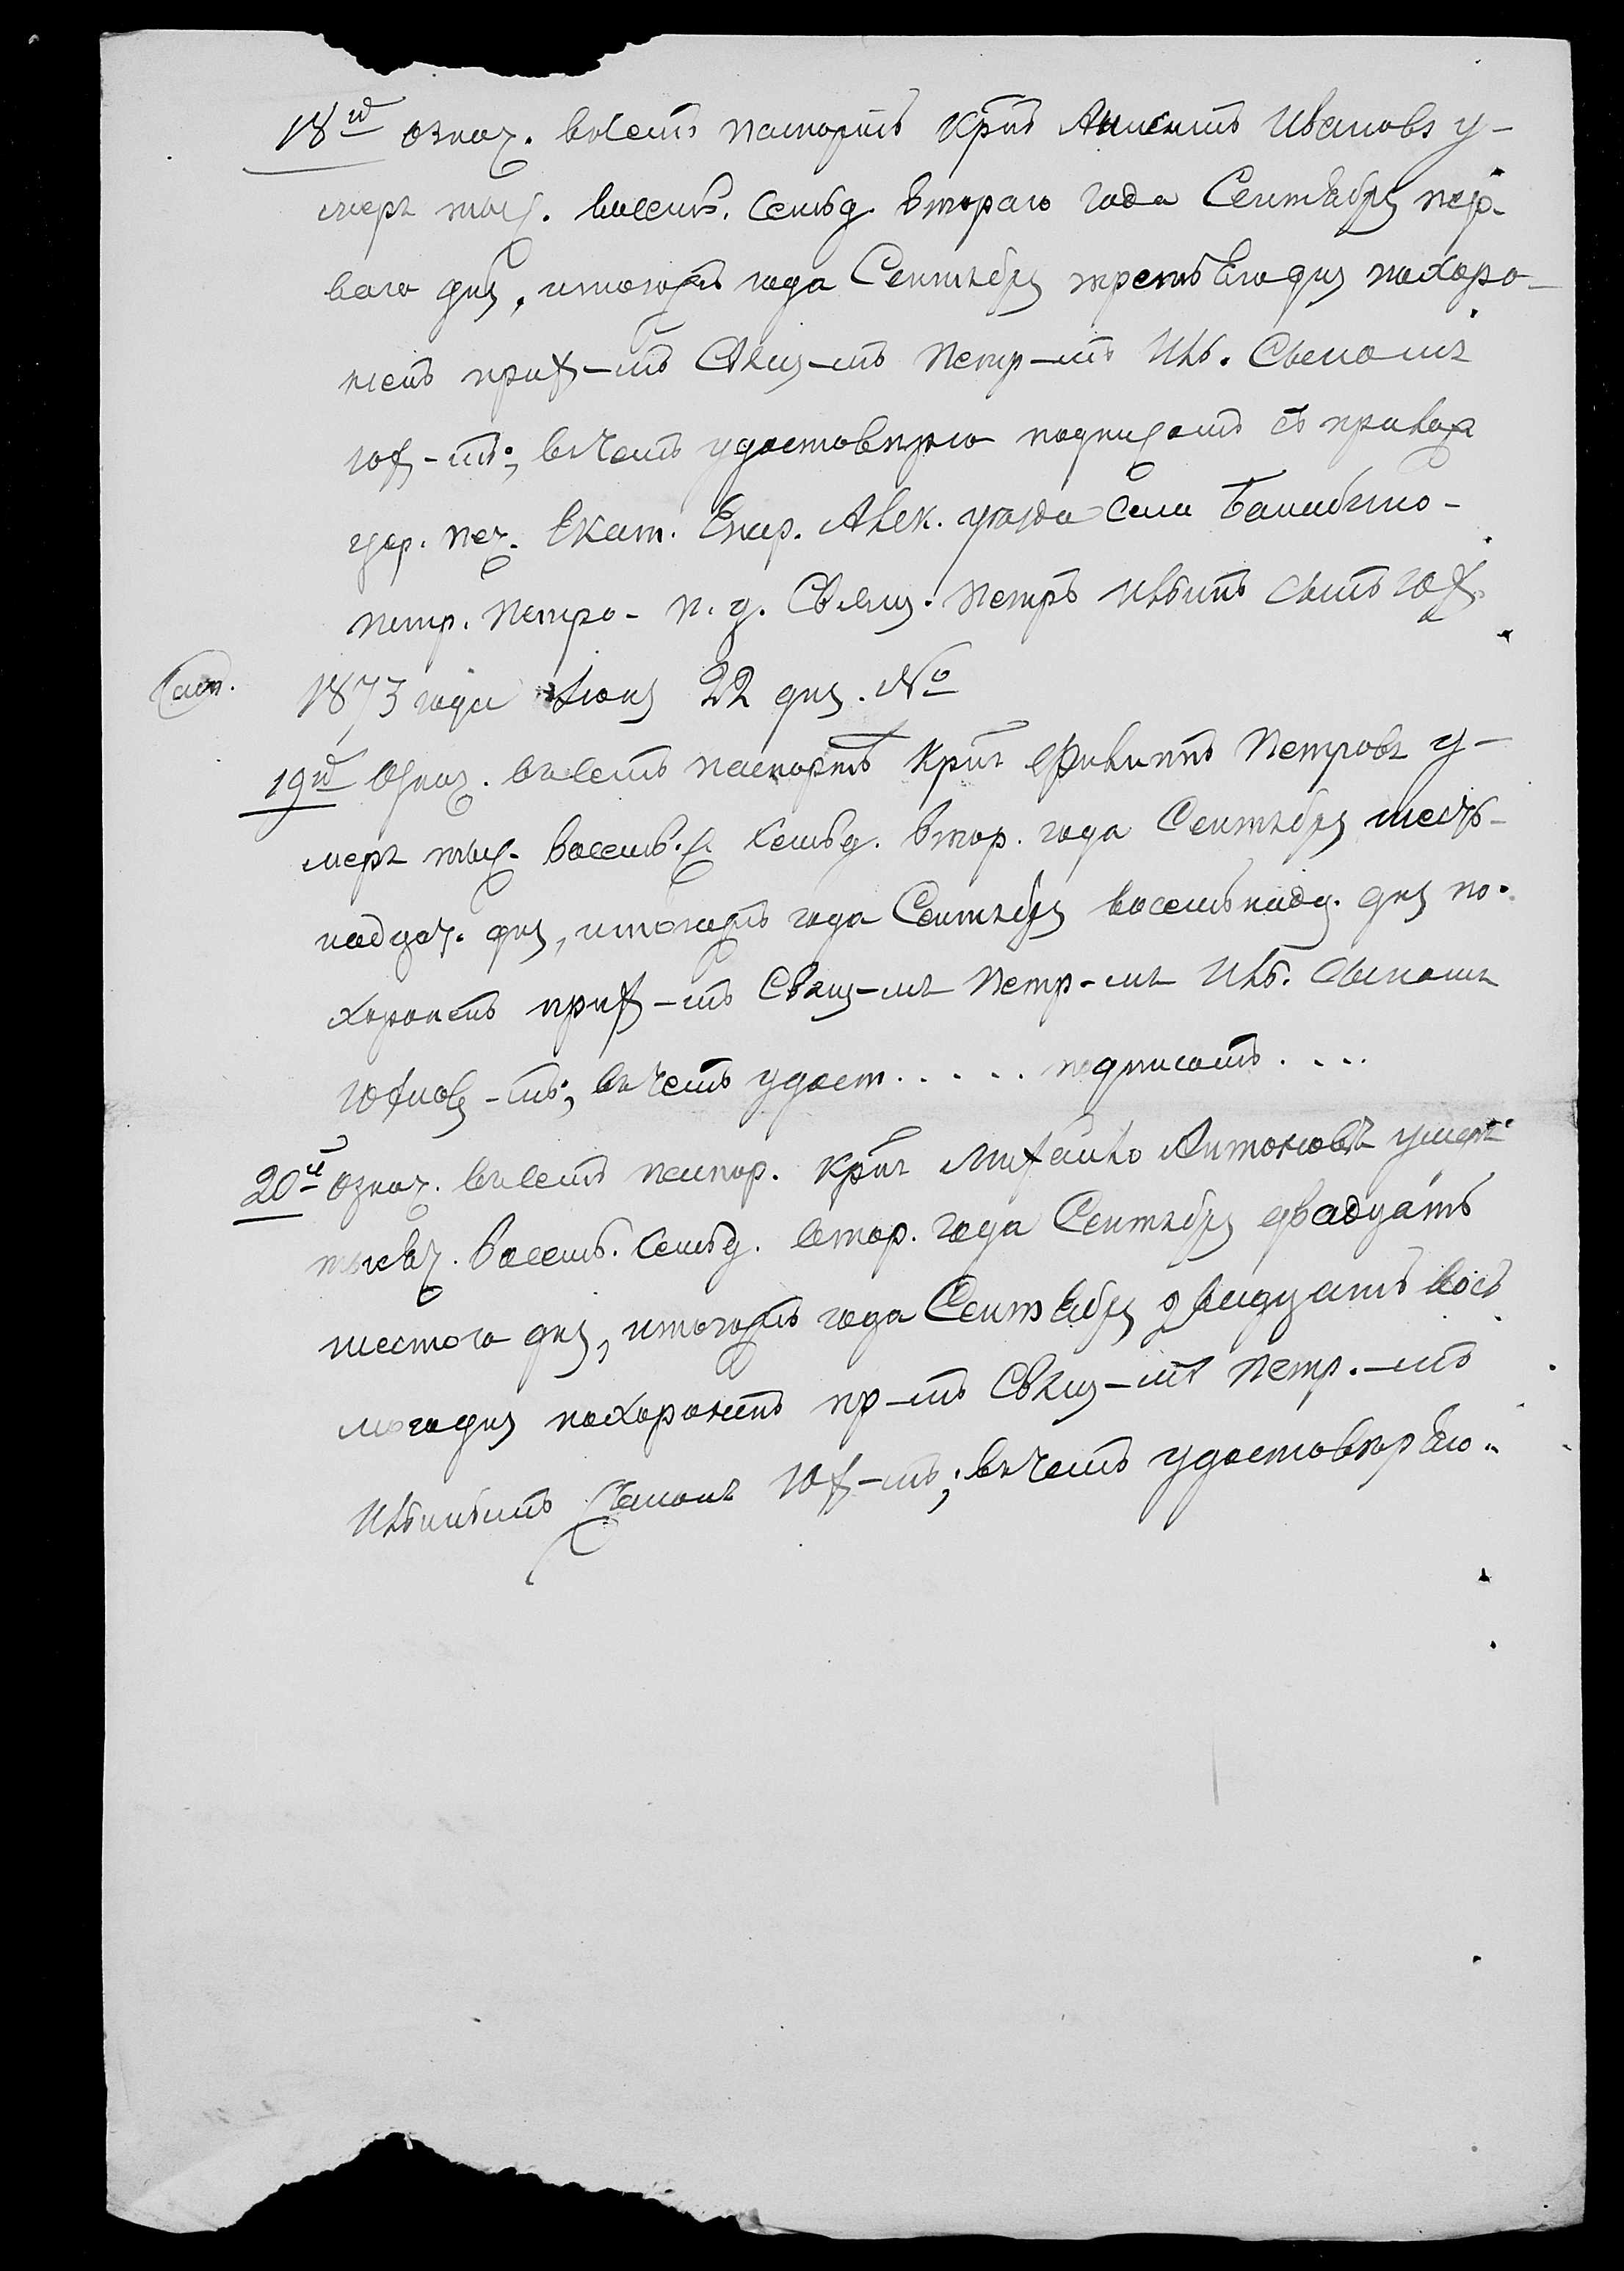 18й означ. въ семъ паспортѣ кр͠нъ Аксентъ Ивановъ у-
меръ тыс. восемь. семьд. втораго года Сентября пер-
ваго дня, и тогожъ года Сентября третьего дня похоро-
ненъ прих-мъ Свящ-мъ Петр-мъ Иль. сыномъ
Юх-мъ; въ чемъ удостовѣряю подписомъ съ прилож
цер. печ. Екат. Епар. Алек. уезда села
петр. Петро- п. ц. Священ. Петръ Ильинъ сынъ Юх.
1873 года Июня 22 дня. №
19й Означ. въ семъ паспортѣ кр͠нъ Филиппъ Петровъ у-
меръ тыс. восемь.с. семьд. втор. года Сентября шест-
надцат. дня, и тогожъ года Сентября восемьнадц. дня по-
хороненъ прих-мъ Свящ-мъ Петр-мъ Иль. сыномъ
Юхнов-мъ; въ чемъ удост. . . . . подписомъ. . . .
20й Означ. въ семъ паспор. кр͠нъ Михайло Антоновъ умеръ
тысяч. восемь. семьд. втор. года Сентября двадцать
шестого дня, и тогожъ года Сентября двадцать вось
мого дня похороненъ пр-мъ Свящ-мъ Петр.-мъ
Ильинымъ Сыномъ Юх-мъ; въ чемъ удостовѣряю..